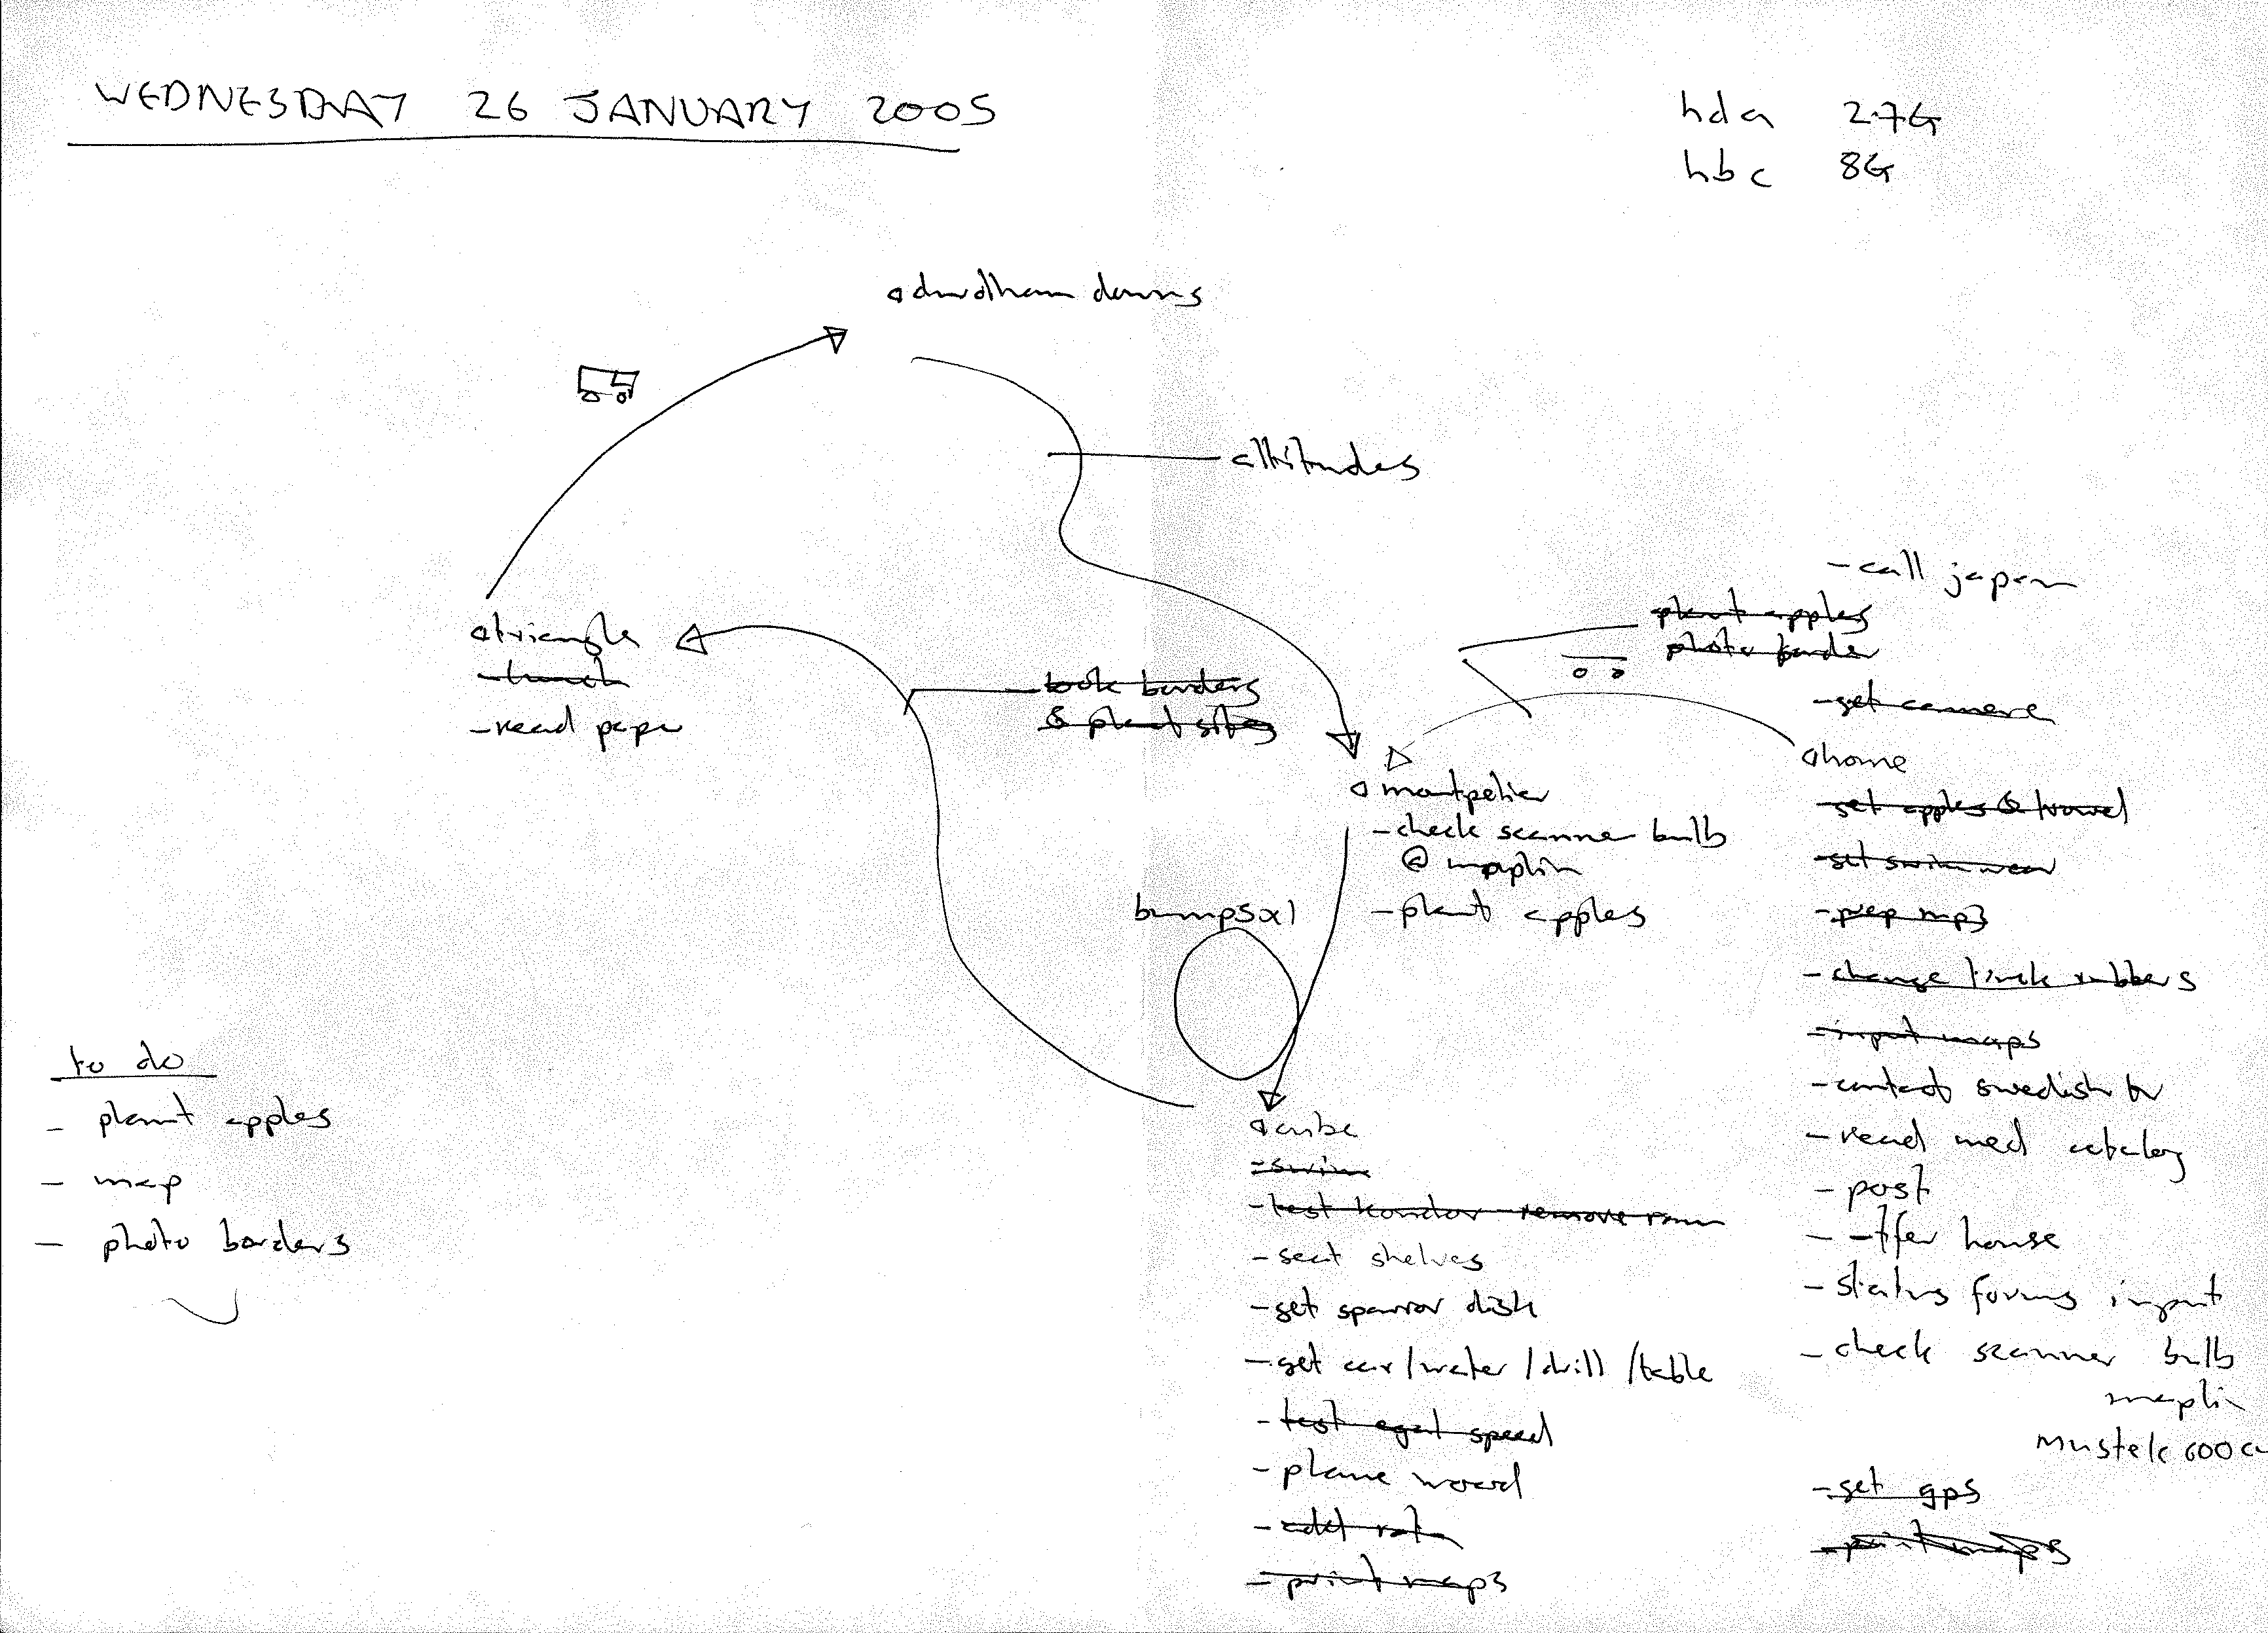 WEDNESDAY 26 JANUARY 2005
hda 2.7G
hbc 8G
durdham downs
altitudes
- call japan
plant apples
photo border
- get camera
home
- get apples & trowel
- get swimwear
- prep mp3
- change track rubbers
- input maps
- contact swedish tv
- read med catalog
- post
- tfer house
- status forms input
- check scanner bulb
maplin
mustek 600
- get gps
- print maps
triangle
- lunch
- read paper
- look borders
& plant sites
montpelier
- check scanner bulb
@ maplin
- plant apples
bumpsx1
cube
- swim
- test kondor remove ram
- seat shelves
- get sparror disk
- get car/water/drill/table
- test egat speed
- plane wood
- add
- print maps
to do
- plant apples
- map
- photo borders